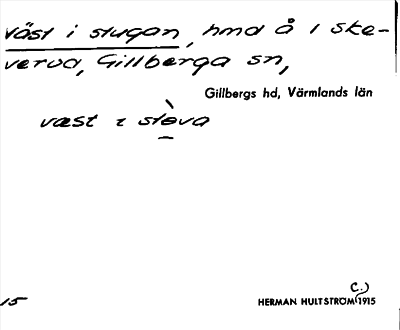 väst i stugan, hmd å 1 ske-
verud, Gillberga sn,
Gillbergs hd, Värmlands län
væst ɩ stòva
C.)
15 HERMAN HULTSTRÖM 1915